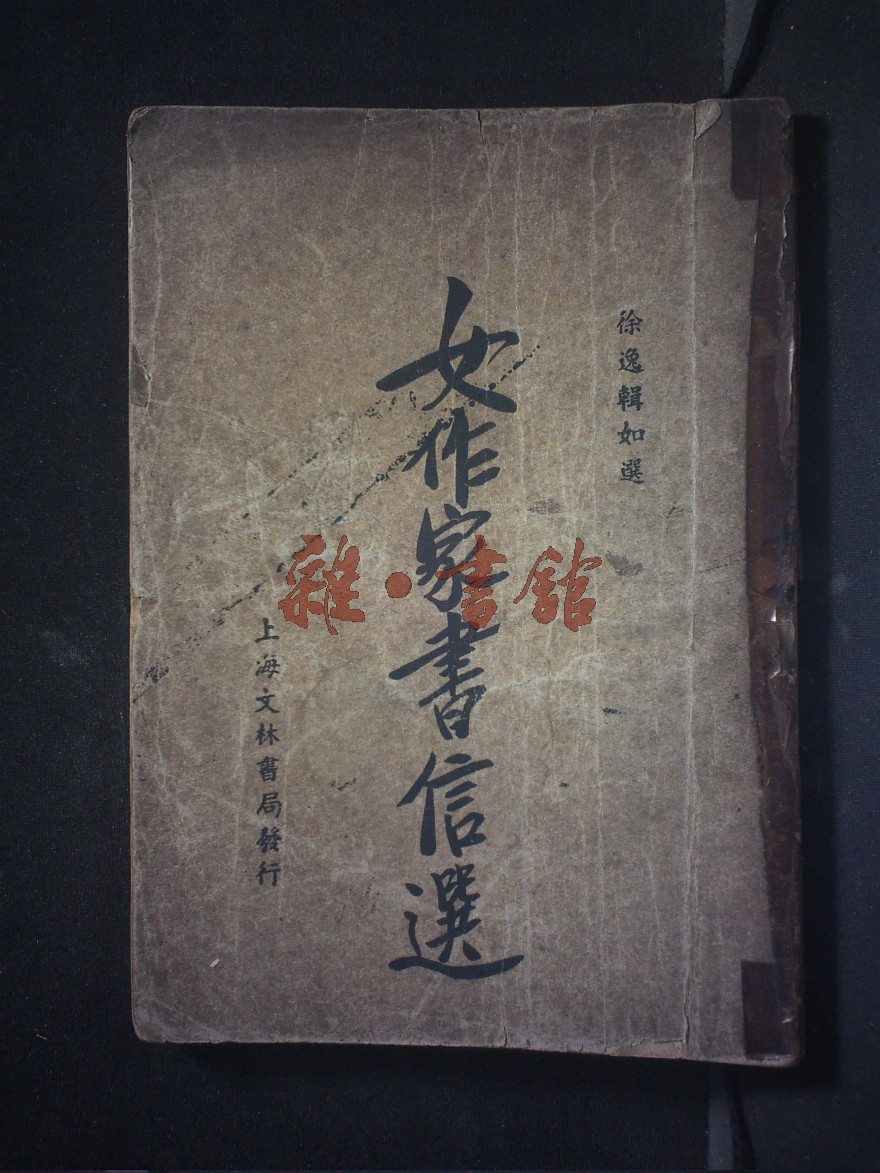 徐逸輯如選
女作家書信選
上海文林書局發行
雜·書館